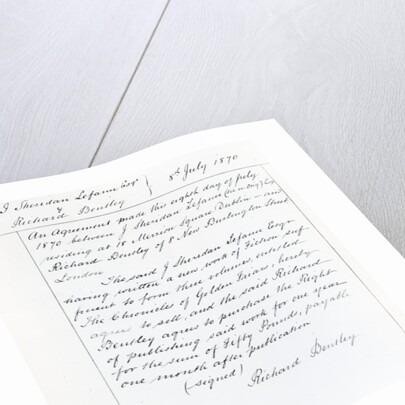 J Sheridan Lefanu Esqr
& Richard Bentley
8th July 1870
An Agreement made this eighth day of July
1870 between J Sheridan Lefanu Esqr
residing at 18 Merrion Square Dublin and
Richard Bentley of 8 New Burlington Street
London
The said J Sheridan Lefanu Esqr
having written a new work of Fiction suf
ficient to form three volumes, entitled
The Chronicles of Golden Friars, hereby
agrees to sell, and the said Richard
Bentley agrees to purchase the Right
of publishing said work for one year
for the sum of Fifty Pounds, payable
one month after publication
(signed) Richard Bentley